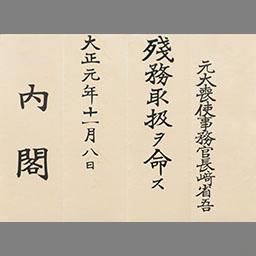 元大喪使事務官長﨑省吾
殘務取扱ヲ命ス
大正元年十一月八日
內閣